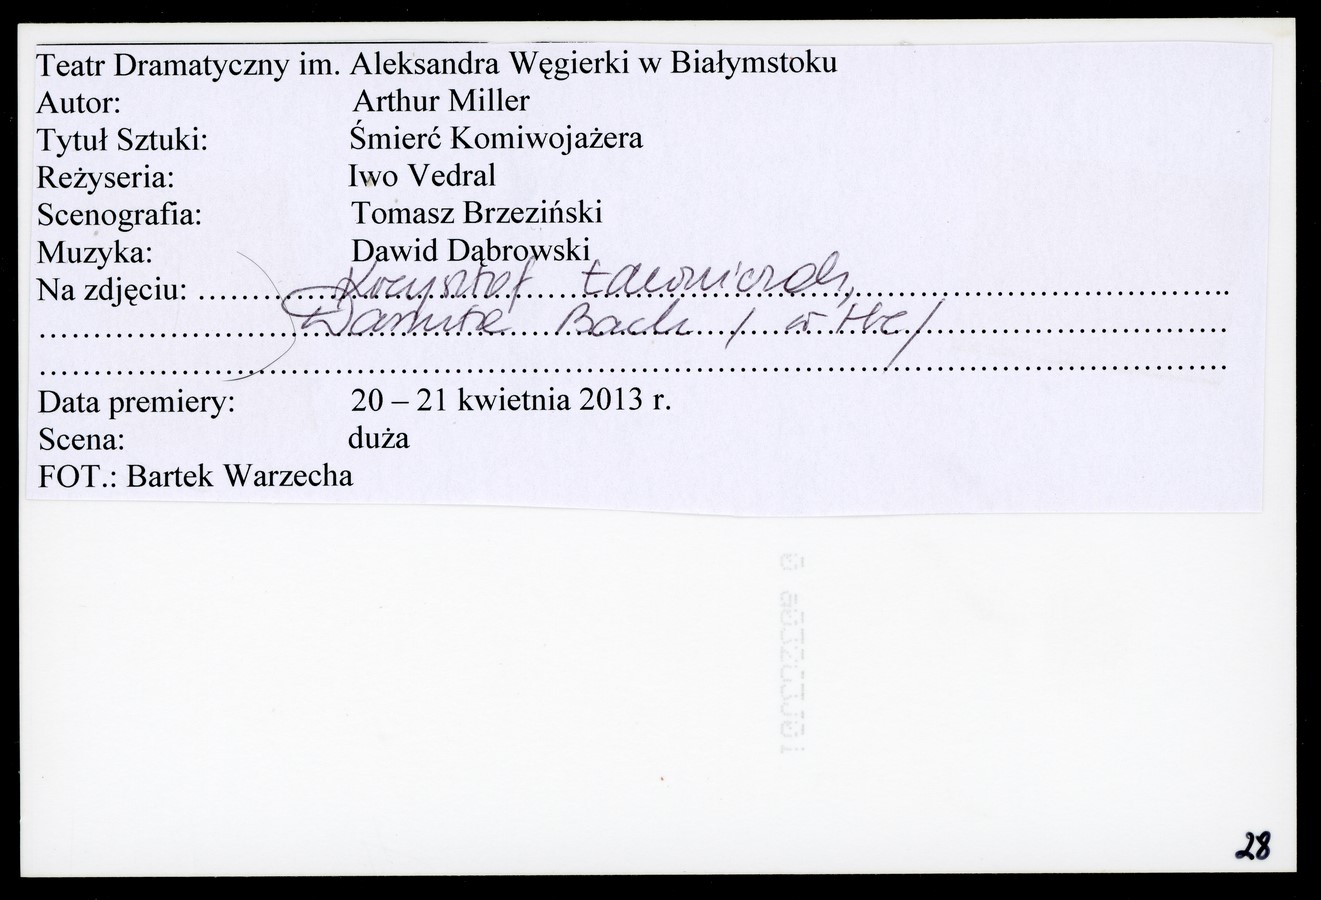 Teatr Dramatyczny im. Aleksandra Węgierki w Białymstoku
Autor: Arthur Miller
Tytuł Sztuki: Śmierć Komiwojażera
Reżyseria: Iwo Vedral
Scenografia: Tomasz Brzeziński
Muzyka: Dawid Dąbrowski
Na zdjęciu: Krzysztof Ławniczak,
Danuta Bach / w tle /
Data premiery: 20 – 21 kwietnia 2013 r.
Scena: duża
FOT.: Bartek Warzecha
28